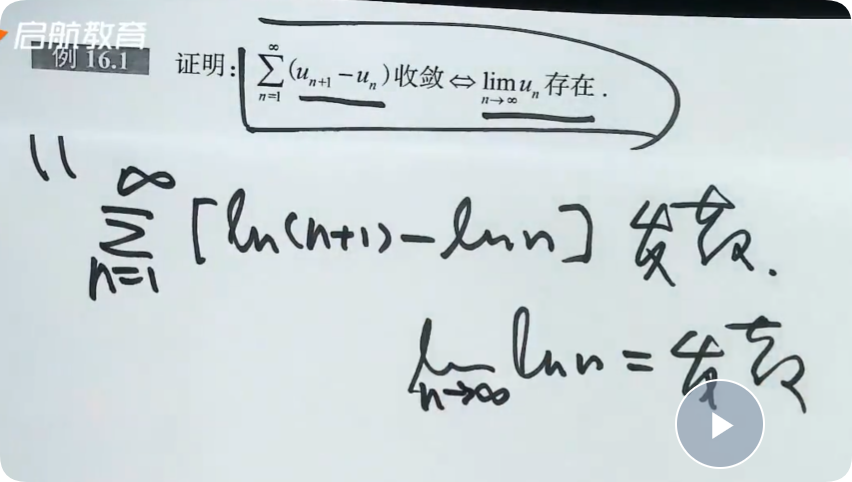 启航教育
例 16.1 证明：$\sum_{n=1}^{\infty}(u_{n+1}-u_n)$收敛⇔$\lim_{n\to\infty}u_n$存在.
$\sum_{n=1}^{\infty}[\ln(n+1)-\ln n]$ 发散.
$\lim_{n\to\infty}\ln n=$发散